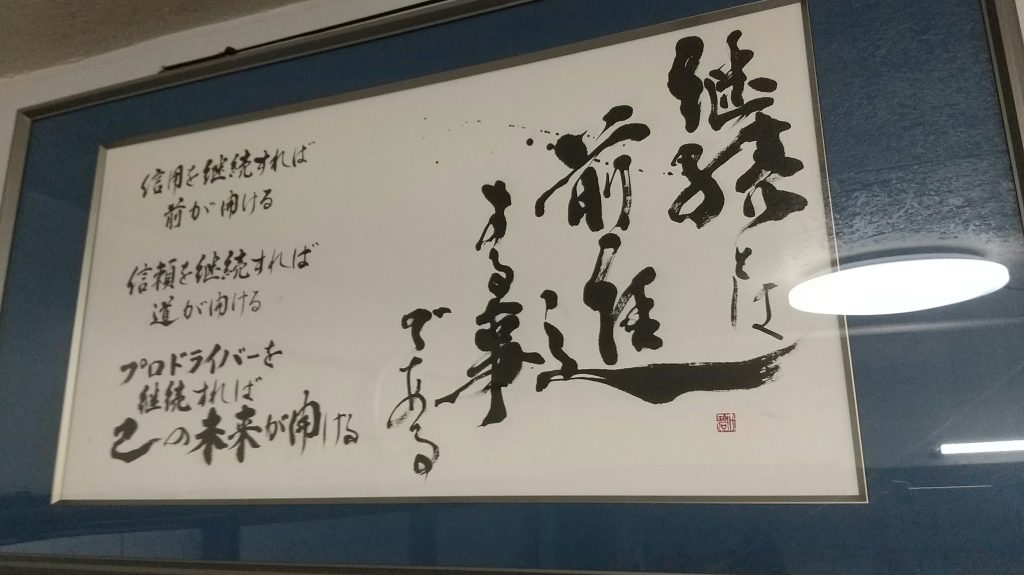 継続とは
前進
する事
である
信用を継続すれば
前が開ける
信頼を継続すれば
道が開ける
プロドライバーを
継続すれば
己の未来が開ける